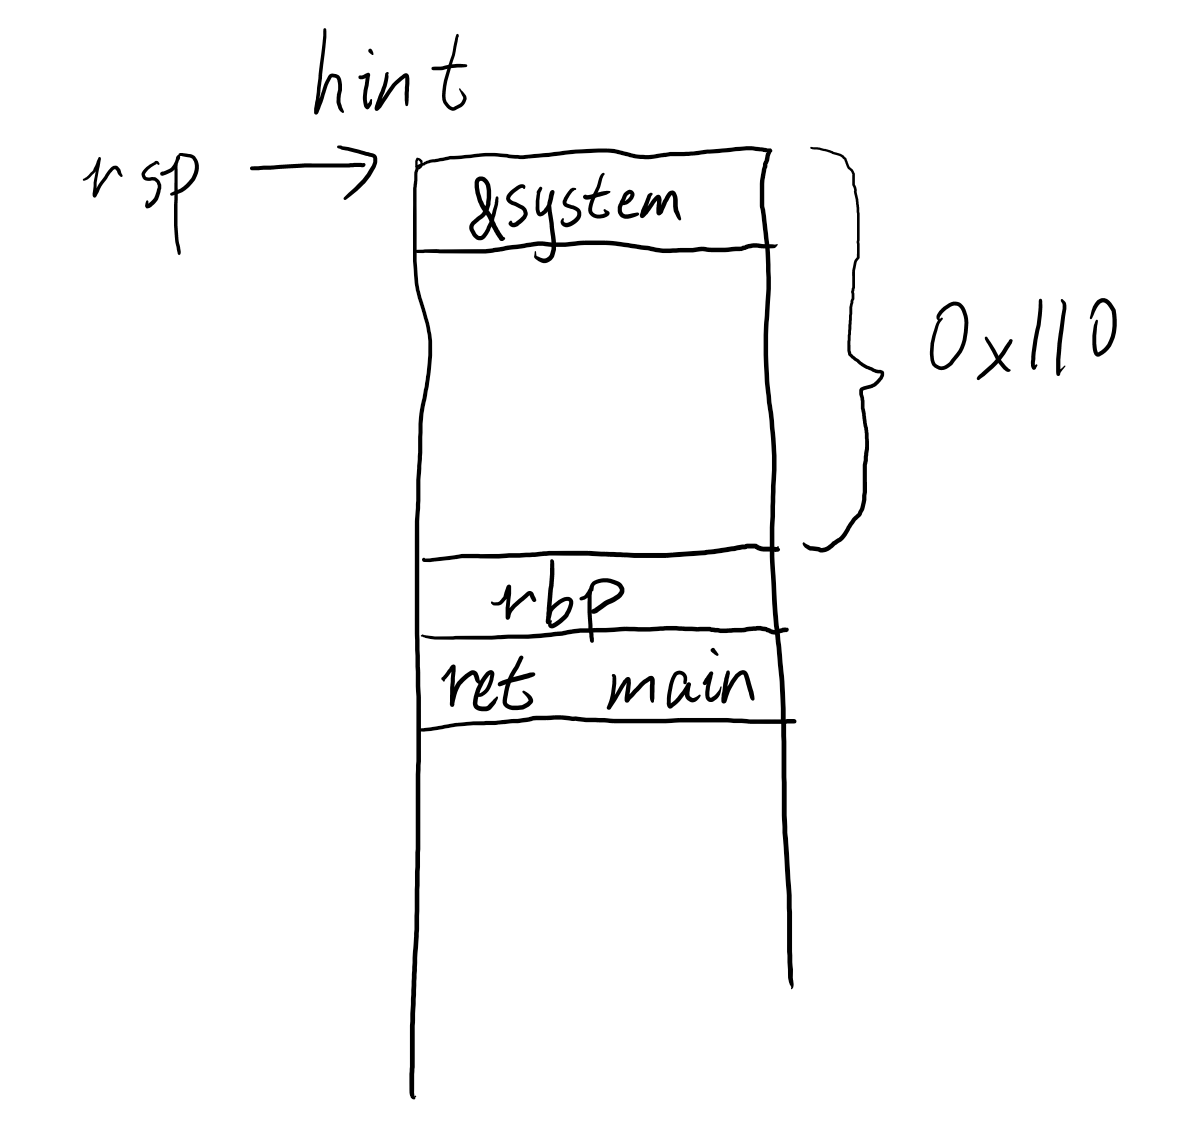 hint
rsp
&system
0x110
rbp
ret main